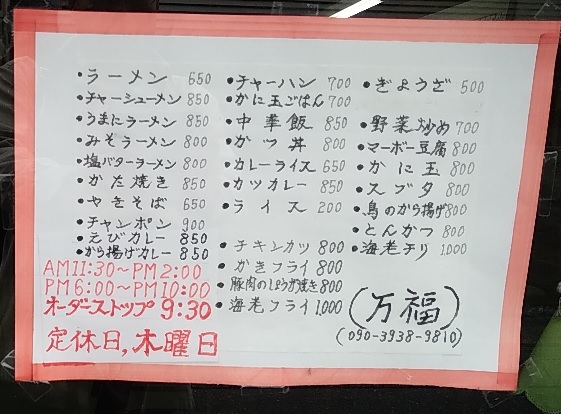 ・ラーメン 650
・チャーシューメン 850
・うまにラーメン 850
・みそラーメン 800
・塩バターラーメン 800
・かた焼き 850
・やきそば 650
・チャンポン 900
・えびカレー 850
・から揚げカレー 850
AM11:30〜PM2:00
PM6:00〜PM10:00
オーダーストップ 9:30
定休日,木曜日
・チャーハン 700
・かに玉ごはん 700
・中華飯 850
・かつ丼 800
・カレーライス 650
・カツカレー 850
・ライス 200
・チキンカツ 800
・かきフライ 800
・豚肉のしょうが焼き 800
・海老フライ 1,000
・ぎょうざ 500
・野菜炒め 700
・マーボー豆腐 800
・かに玉 800
・スブタ 800
・鳥のから揚げ 800
・とんかつ 800
・海老チリ 1,000
(万福)
(090-3938-9810)